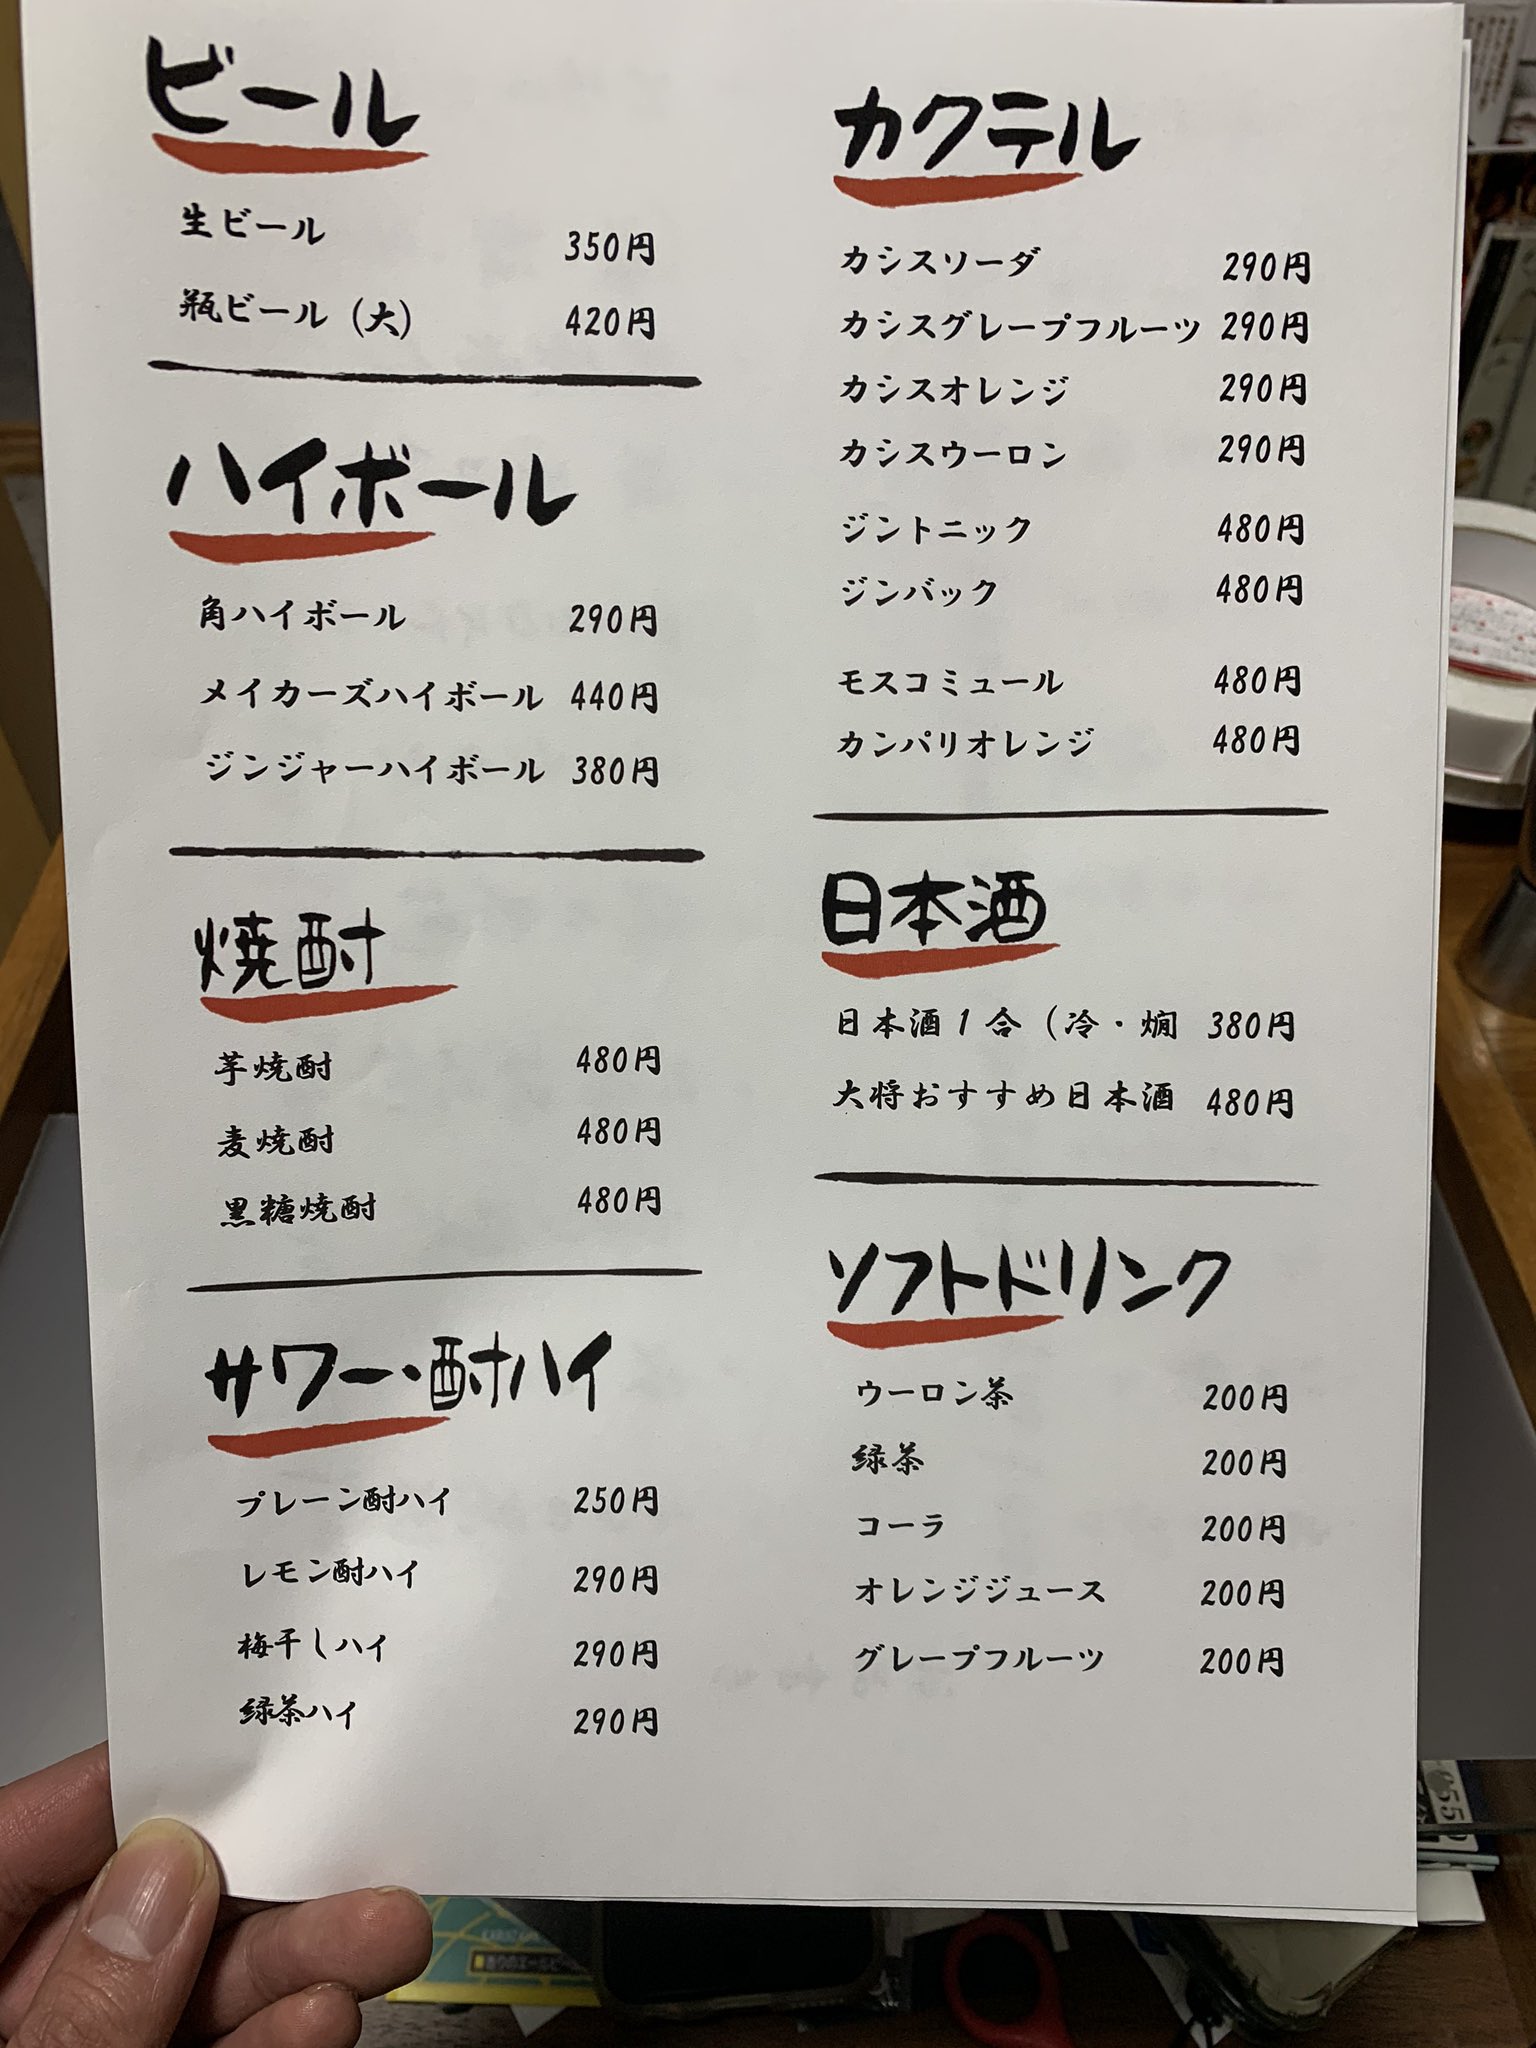 ビール
生ビール 350円
瓶ビール（大） 420円
ハイボール
角ハイボール 290円
メイカーズハイボール 440円
ジンジャーハイボール 380円
焼酎
芋焼酎 480円
麦焼酎 480円
黒糖焼酎 480円
サワー・酎ハイ
プレーン酎ハイ 250円
レモン酎ハイ 290円
梅干しハイ 290円
緑茶ハイ 290円
カクテル
カシスソーダ 290円
カシスグレープフルーツ 290円
カシスオレンジ 290円
カシスウーロン 290円
ジントニック 480円
ジンバック 480円
モスコミュール 480円
カンパリオレンジ 480円
日本酒
日本酒1合（冷・燗 380円
大将おすすめ日本酒 480円
ソフトドリンク
ウーロン茶 200円
緑茶 200円
コーラ 200円
オレンジジュース 200円
グレープフルーツ 200円